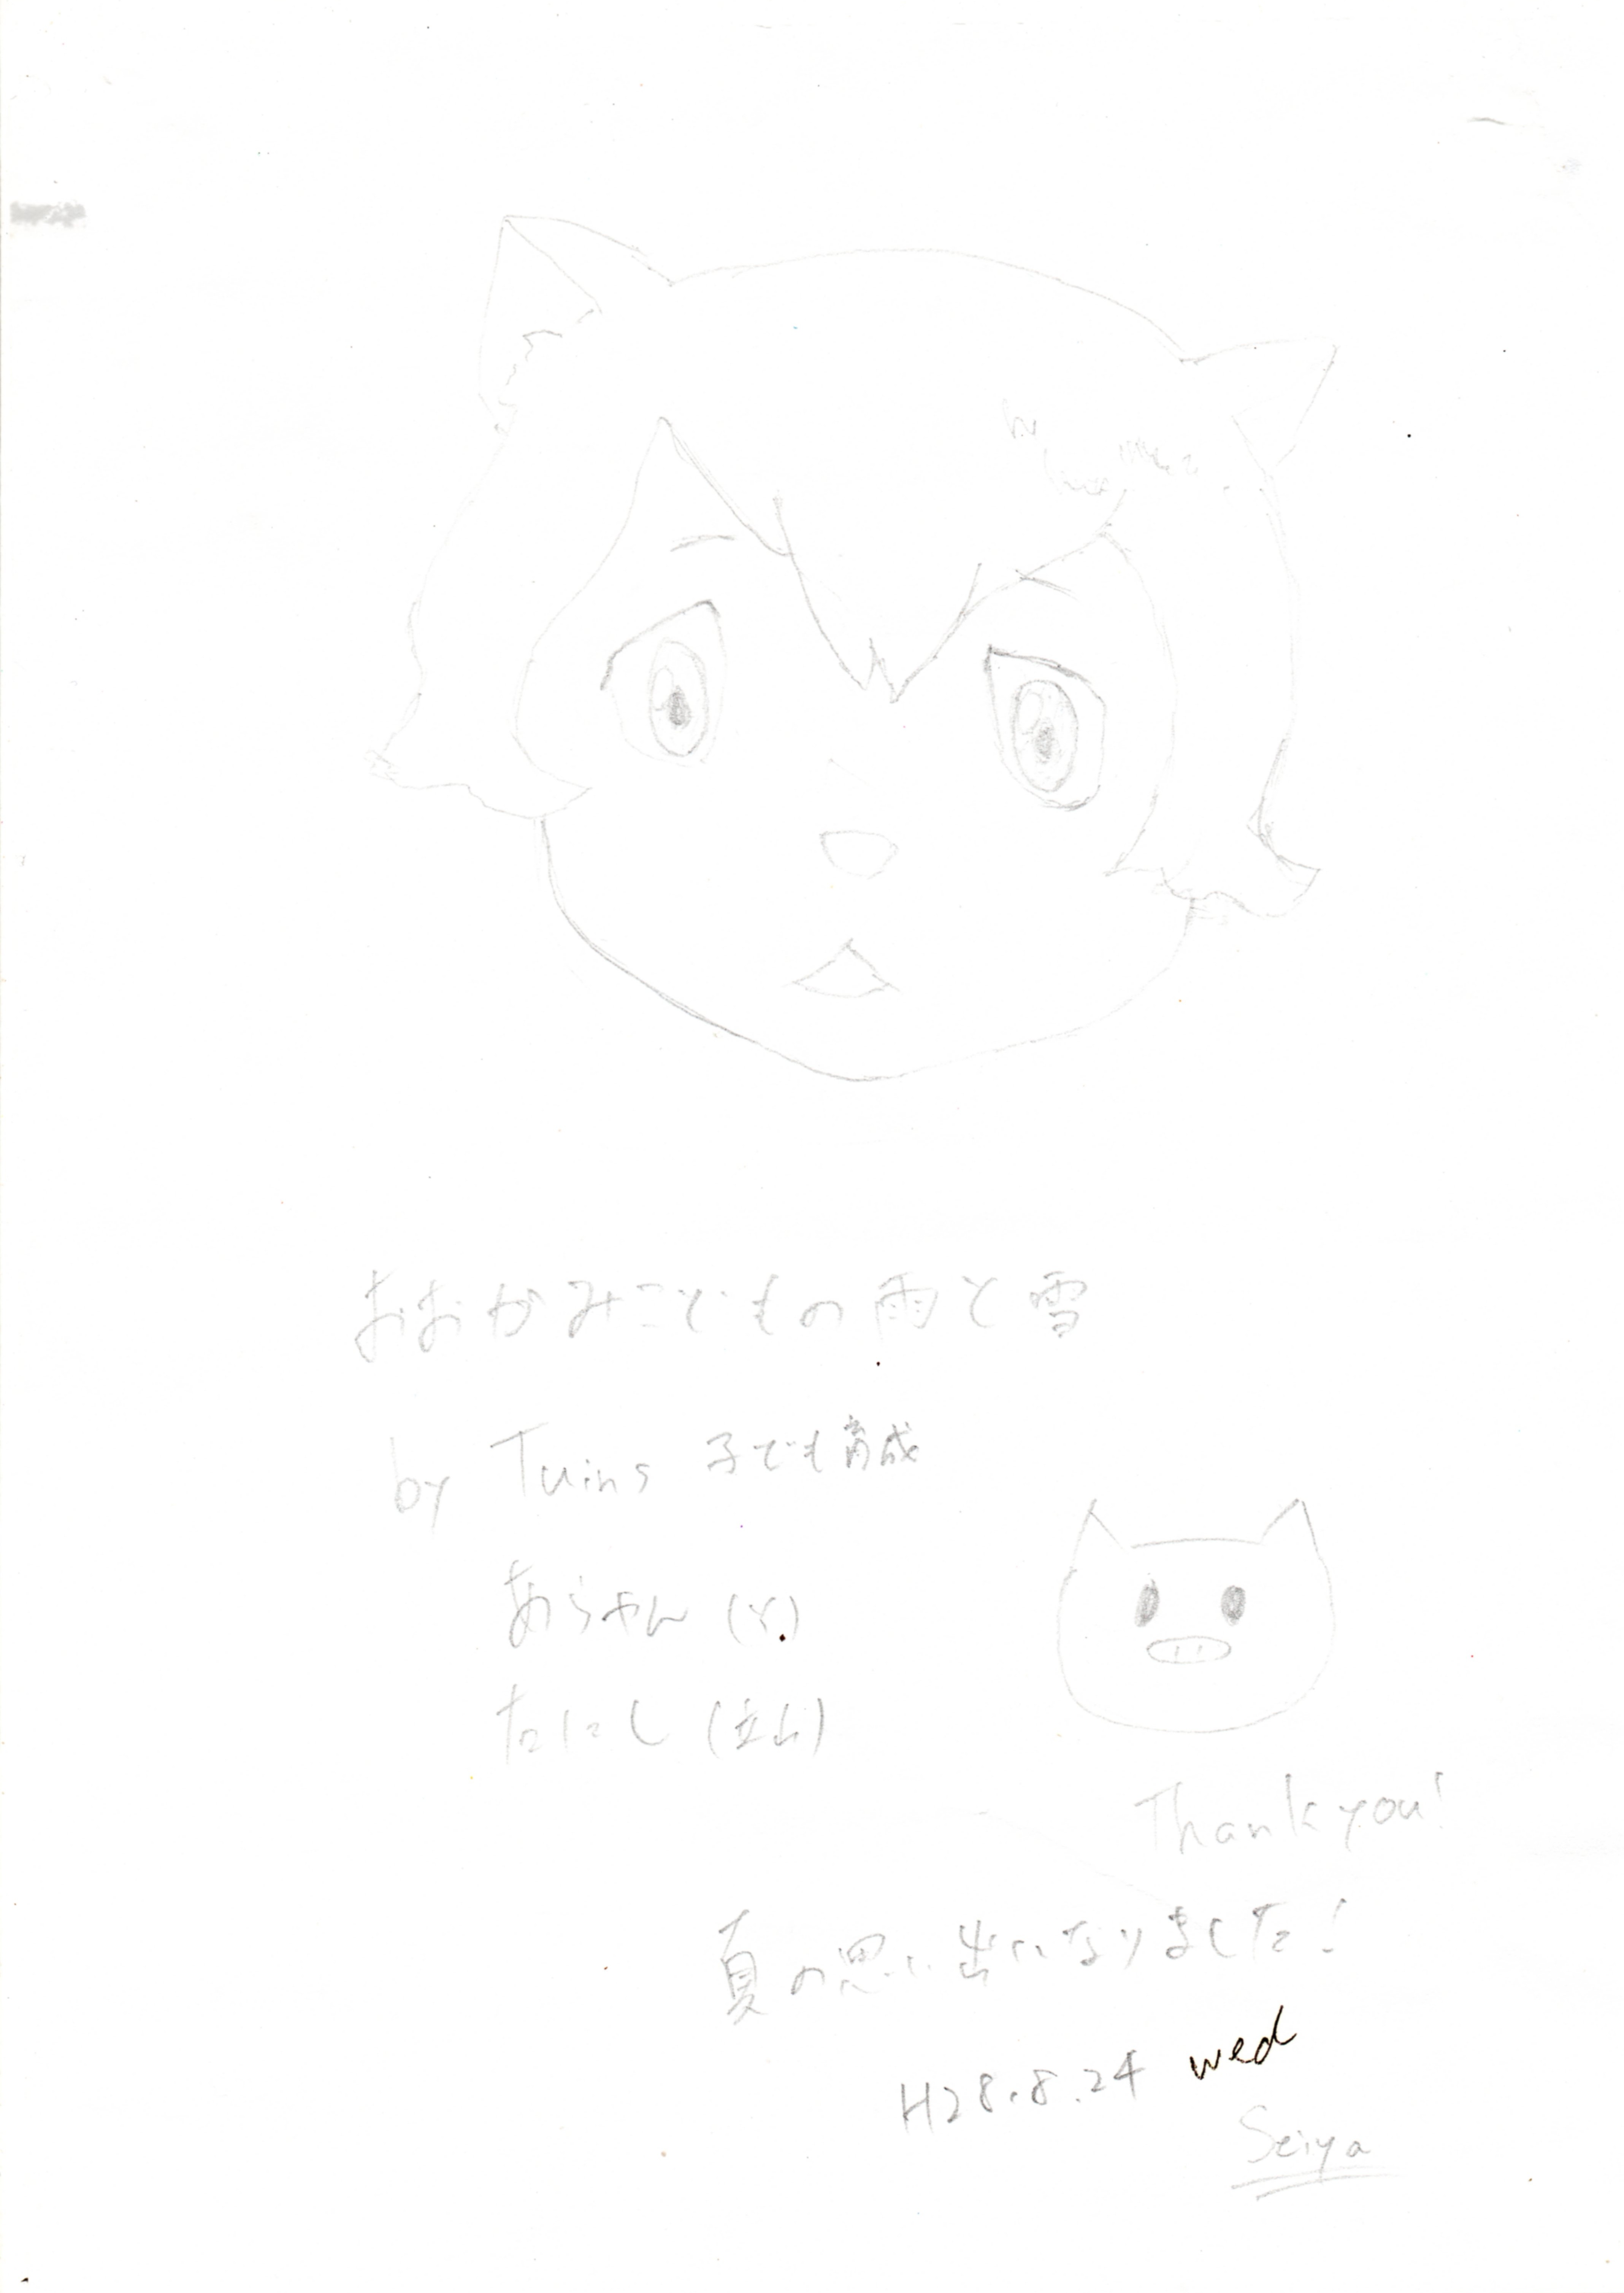 おおかみこどもの雨と雪
by Tuins 子ども育成
あらやん
たにし
Thank you!
夏の思い出になりました!
H28.8.24 wed
Seiya